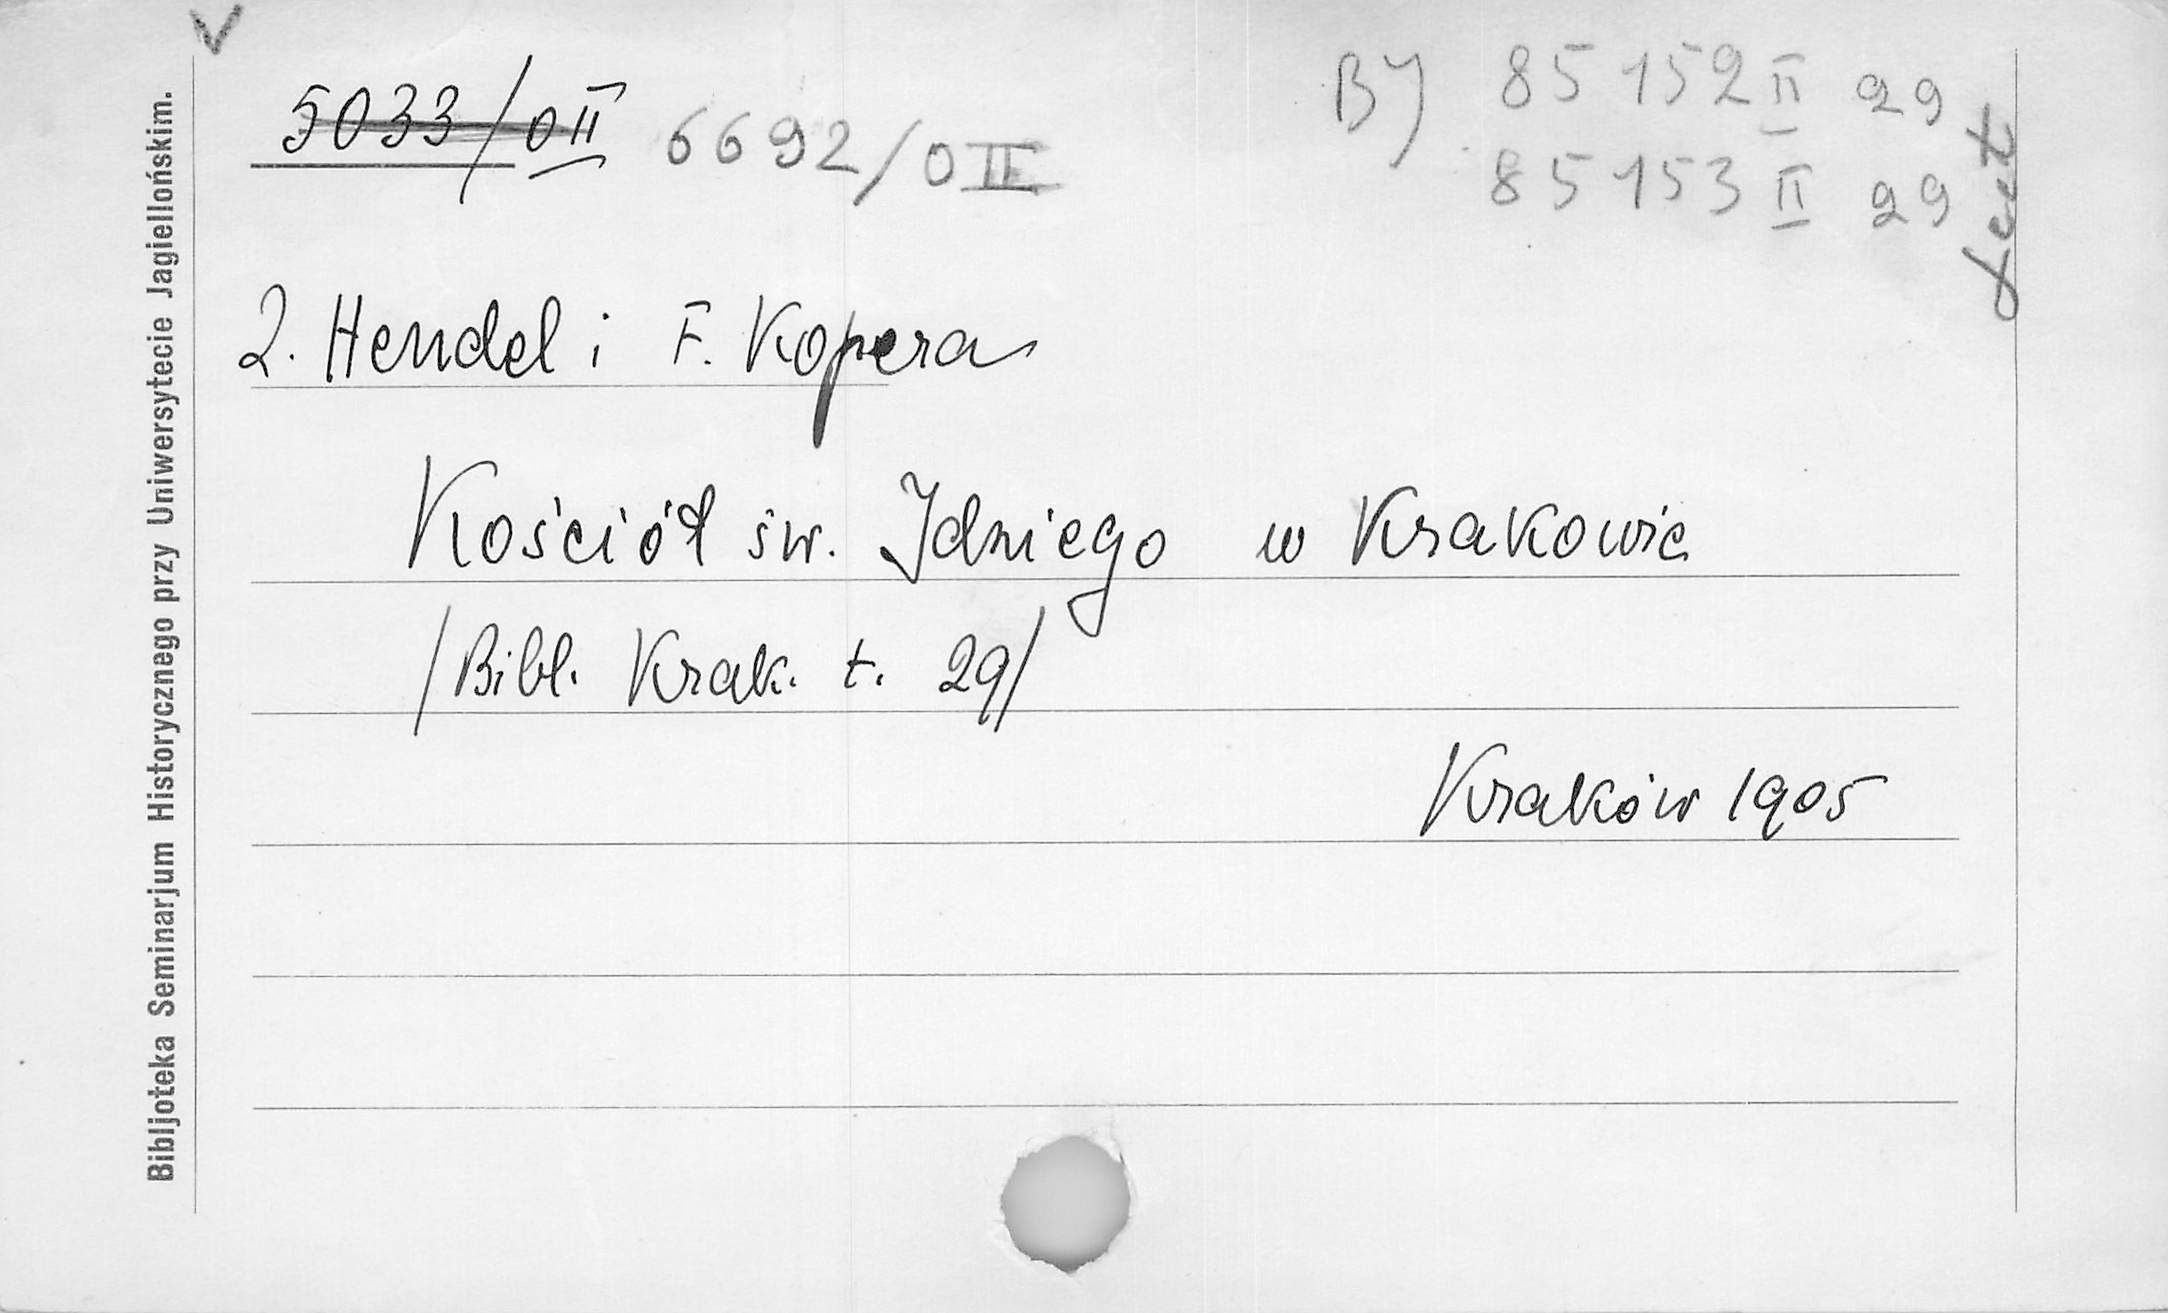 V
5033/0II 6692/0II
BJ 85 152 II 29
85 153 II 29
Z. Hendel i F. Kopera
Kościół św. Idziego w Krakowie
/Bibl. Krak. t. 29/
Kraków 1905
Bibljoteka Seminarjum Historycznego przy Uniwersytecie Jagiellońskim.